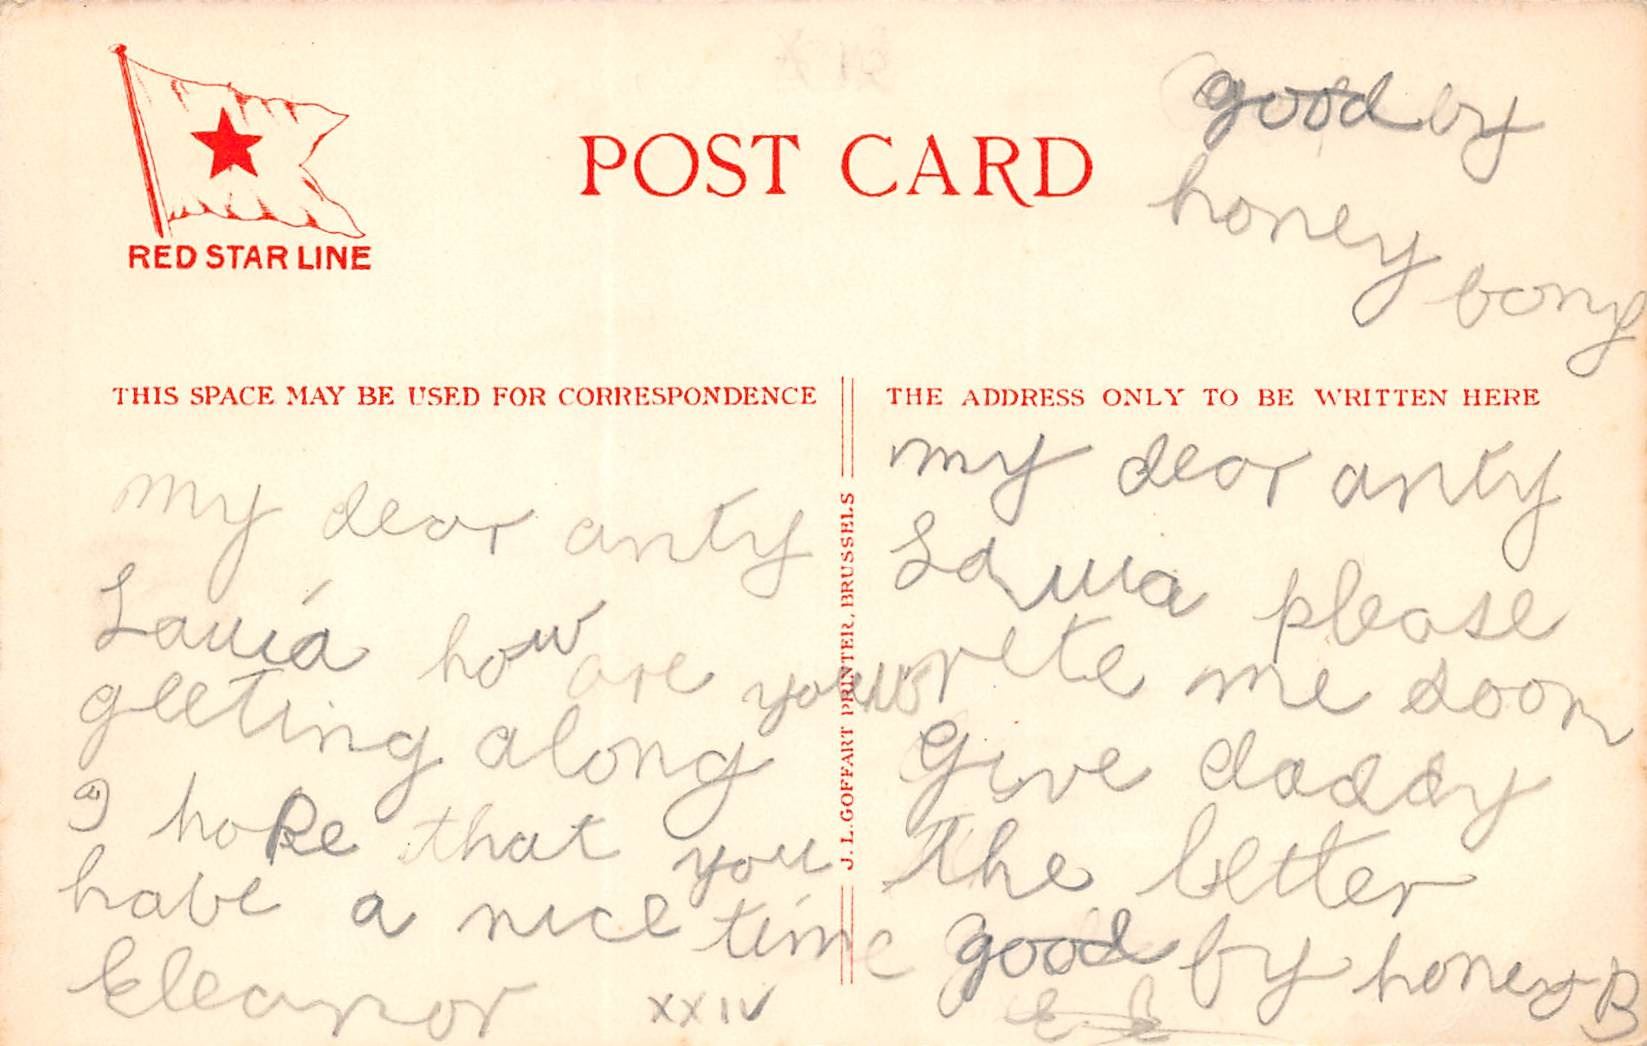 RED STAR LINE
POST CARD
good by
honey bony
THIS SPACE MAY BE USED FOR CORRESPONDENCE
my dear anty
Lauia how are you
geeting along
I hope that you
have a nice time
Eleanor XXIV
J. L. GOFFART PRINTER, BRUSSELS
THE ADDRESS ONLY TO BE WRITTEN HERE
my dear anty
Lauia please
write me soon
Give daddy
the letter
good by honey B